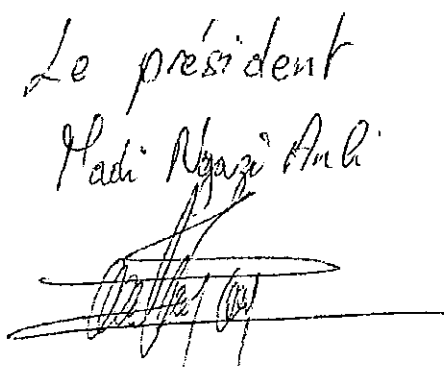 Le président
Madi Ngazi Anli